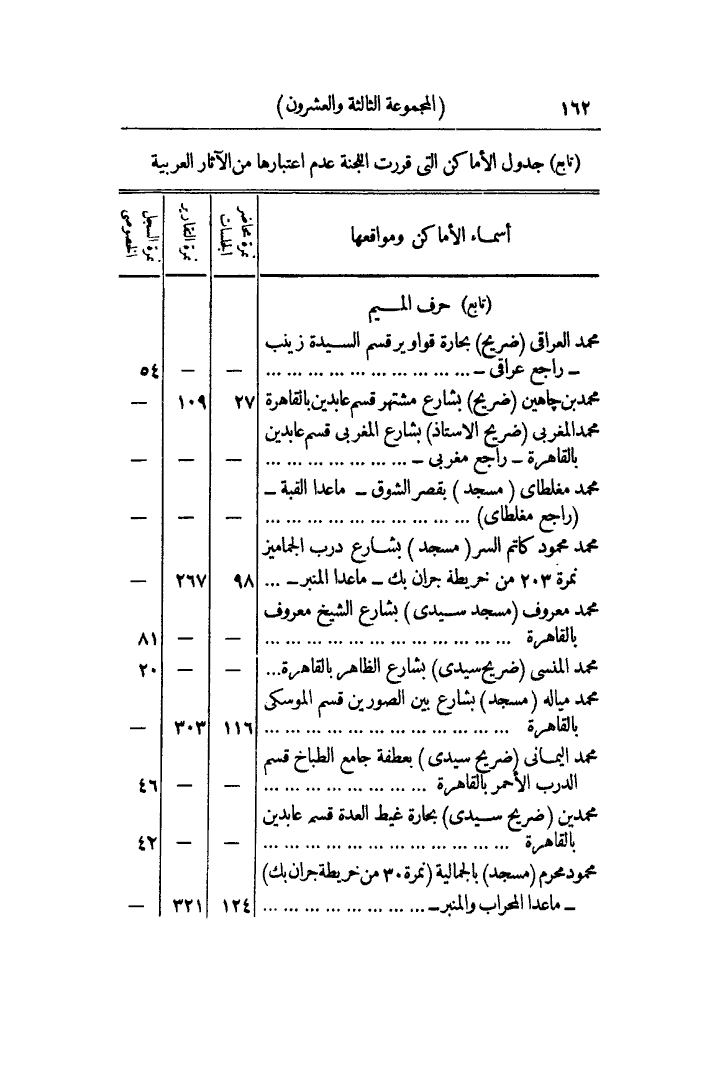 ١٦٢ (المجموعة الثالثة والعشرون)
(تابع) جدول الأماكن التى قررت اللجنة عدم اعتبارها من الآثار العربية
أسماء الأماكن ومواقعها | نمرة محاضر الجلسات | نمرة التقارير | نمرة السجل الخصوصى
(تابع) حرف الميم
محمد العراقى (ضريح) بحارة قواوير قسم السيدة زينب
ـ راجع عراقى ـ ... ... ... ... ... ... ... ... ... ... — — ٥٤
محمد بن چاهين (ضريح) بشارع مشتهر قسم عابدين بالقاهرة ٢٧ ١٠٩ —
محمد المغربى (ضريح الاستاذ) بشارع المغربى قسم عابدين
بالقاهرة ـ راجع مغربى ـ ... ... ... ... ... ... ... — — —
محمد مغلطاى (مسجد) بقصر الشوق ـ ماعدا القبة ـ
(راجع مغلطاى) ... ... ... ... ... ... ... ... ... ... — — —
محمد محمود كاتم السر (مسجد) بشارع درب الجماميز
نمرة ٢٠٣ من خريطة جران بك ـ ماعدا المنبر ـ ... ٩٨ ٢٦٧ —
محمد معروف (مسجد سيدى) بشارع الشيخ معروف
بالقاهرة ... ... ... ... ... ... ... ... ... ... ... ... — — ٨١
محمد المنسى (ضريح سيدى) بشارع الظاهر بالقاهرة... — — ٢٠
محمد مياله (مسجد) بشارع بين الصورين قسم الموسكى
بالقاهرة ... ... ... ... ... ... ... ... ... ... ... ... ١١٦ ٣٠٣ —
محمد اليمانى (ضريح سيدى) بعطفة جامع الطباخ قسم
الدرب الأحمر بالقاهرة ... ... ... ... ... ... ... ... — — ٤٦
محمدين (ضريح سيدى) بحارة غيط العدة قسم عابدين
بالقاهرة ... ... ... ... ... ... ... ... ... ... ... ... — — ٤٢
محمود محرم (مسجد) بالجمالية (نمرة ٣٠ من خريطة جران بك)
ـ ماعدا المحراب والمنبر ـ ... ... ... ... ... ... ... ... ١٢٤ ٣٢١ —